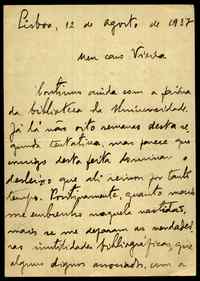 Lisboa, 12 de agosto de 1937
Meu caro Vieira
Continuo ainda com a
da biblioteca da Universidade.
Já lá vão oito semanas desta se-
gunda tentativa, mas parece que
consigo desta feita dominar o
desleixo que ali reinou por tanto
tempo. Positivamente, quanto mais
me embrenho naquela
mais se me deparam as
ras inutilidades bibliográficas, que
alguns dignos com a